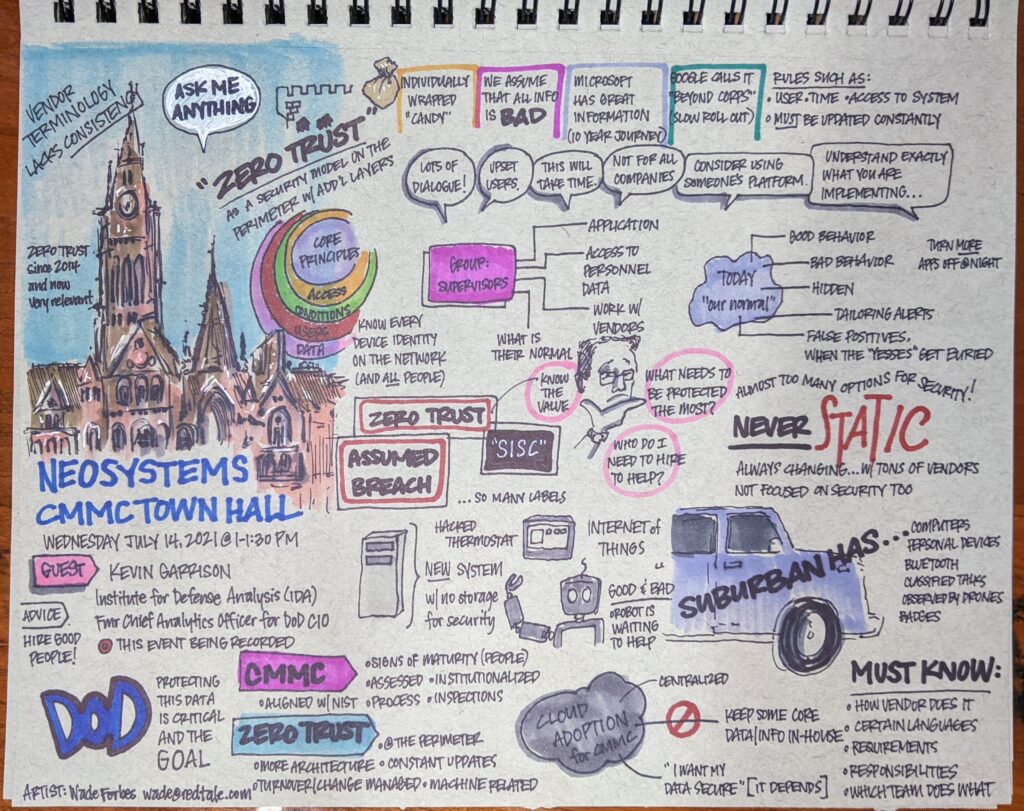 VENDOR
TERMINOLOGY
LACKS CONSISTENCY
ASK ME
ANYTHING
"ZERO TRUST"
AS A SECURITY MODEL ON THE
PERIMETER W/ ADD'L LAYERS
INDIVIDUALLY
WRAPPED
"CANDY"
WE ASSUME
THAT ALL INFO
IS BAD
MICROSOFT
HAS GREAT
INFORMATION
(10 YEAR JOURNEY)
GOOGLE CALLS IT
"BEYOND CORPS"
(SLOW ROLL OUT)
RULES SUCH AS:
• USER • TIME • ACCESS TO SYSTEM
• MUST BE UPDATED CONSTANTLY
LOTS OF
DIALOGUE!
UPSET
USERS.
THIS WILL
TAKE TIME.
NOT FOR ALL
COMPANIES
CONSIDER USING
SOMEONE'S PLATFORM.
UNDERSTAND EXACTLY
WHAT YOU ARE
IMPLEMENTING...
ZERO TRUST
since 2014
and now
very relevant
CORE
PRINCIPLES
ACCESS
CONDITIONS
USERS
DATA
KNOW EVERY
DEVICE IDENTITY
ON THE NETWORK
(AND ALL PEOPLE)
GROUP:
SUPERVISORS
APPLICATION
ACCESS TO
PERSONNEL
DATA
WORK W/
VENDORS
WHAT IS
THEIR NORMAL
TODAY
"our normal"
GOOD BEHAVIOR
BAD BEHAVIOR
HIDDEN
TAILORING ALERTS
FALSE POSITIVES.
WHEN THE "YESSES" GET BURIED
TURN MORE
APPS OFF @ NIGHT
KNOW
THE
VALUE
WHAT NEEDS TO
BE PROTECTED
THE MOST?
WHO DO I
NEED TO HIRE
TO HELP?
ZERO TRUST
ASSUMED
BREACH
"SISC"
... SO MANY LABELS
ALMOST TOO MANY OPTIONS FOR SECURITY!
NEVER STATIC
ALWAYS CHANGING... W/ TONS OF VENDORS
NOT FOCUSED ON SECURITY TOO
NEOSYSTEMS
CMMC TOWN HALL
WEDNESDAY JULY 14, 2021 @ 1-1:30 PM
GUEST
KEVIN GARRISON
Institute for Defense Analysis (IDA)
Fmr Chief Analytics Officer for DoD CIO
THIS EVENT BEING RECORDED
ADVICE
HIRE GOOD
PEOPLE!
HACKED
THERMOSTAT
NEW SYSTEM
w/ no storage
for security
INTERNET of
THINGS
GOOD & BAD
• ROBOT IS
WAITING
TO HELP
SUBURBAN HAS...
COMPUTERS
PERSONAL DEVICES
BLUETOOTH
CLASSIFIED TALKS
OBSERVED BY DRONES
BADGES
DOD
PROTECTING
THIS DATA
IS CRITICAL
AND THE
GOAL
CMMC
• SIGNS OF MATURITY (PEOPLE)
• ASSESSED • INSTITUTIONALIZED
• ALIGNED W/ NIST • PROCESS • INSPECTIONS
ZERO TRUST
• @ THE PERIMETER
• MORE ARCHITECTURE • CONSTANT UPDATES
• TURNOVER/CHANGE MANAGED • MACHINE RELATED
CLOUD
ADOPTION
for CMMC
CENTRALIZED
KEEP SOME CORE
DATA/INFO IN-HOUSE
"I WANT MY
DATA SECURE" [IT DEPENDS]
MUST KNOW:
• HOW VENDOR DOES IT
• CERTAIN LANGUAGES
• REQUIREMENTS
• RESPONSIBILITIES
• WHICH TEAM DOES WHAT
ARTIST: Wade Forbes wade@redtale.com